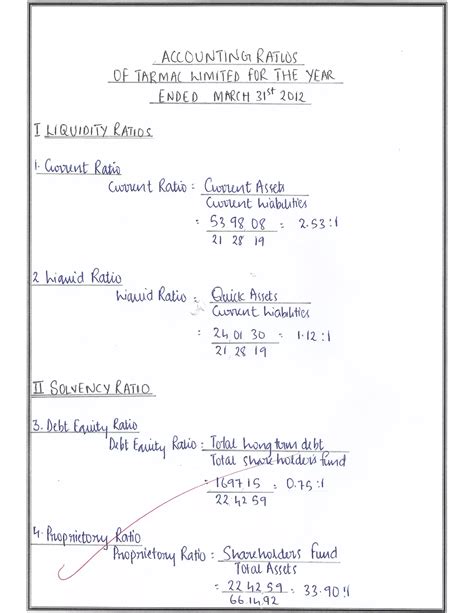 ACCOUNTING RATIOS
OF TARMAC LIMITED FOR THE YEAR
ENDED MARCH 31st 2012
I LIQUIDITY RATIOS
1. Current Ratio
Current Ratio : Current Assets
Current Liabilities
= 53 98 08 = 2.53:1
21 28 19
2 Liquid Ratio
Liquid Ratio = Quick Assets
Current Liabilities
= 24 01 30 = 1.12:1
21 28 19
II SOLVENCY RATIO
3. Debt Equity Ratio
Debt Equity Ratio : Total long term debt
Total shareholders fund
= 169715 = 0.75:1
22 42 59
4. Proprietory Ratio
Proprietory Ratio : Shareholders fund
Total Assets
= 22 42 59 = 33.90:1
66.14.92